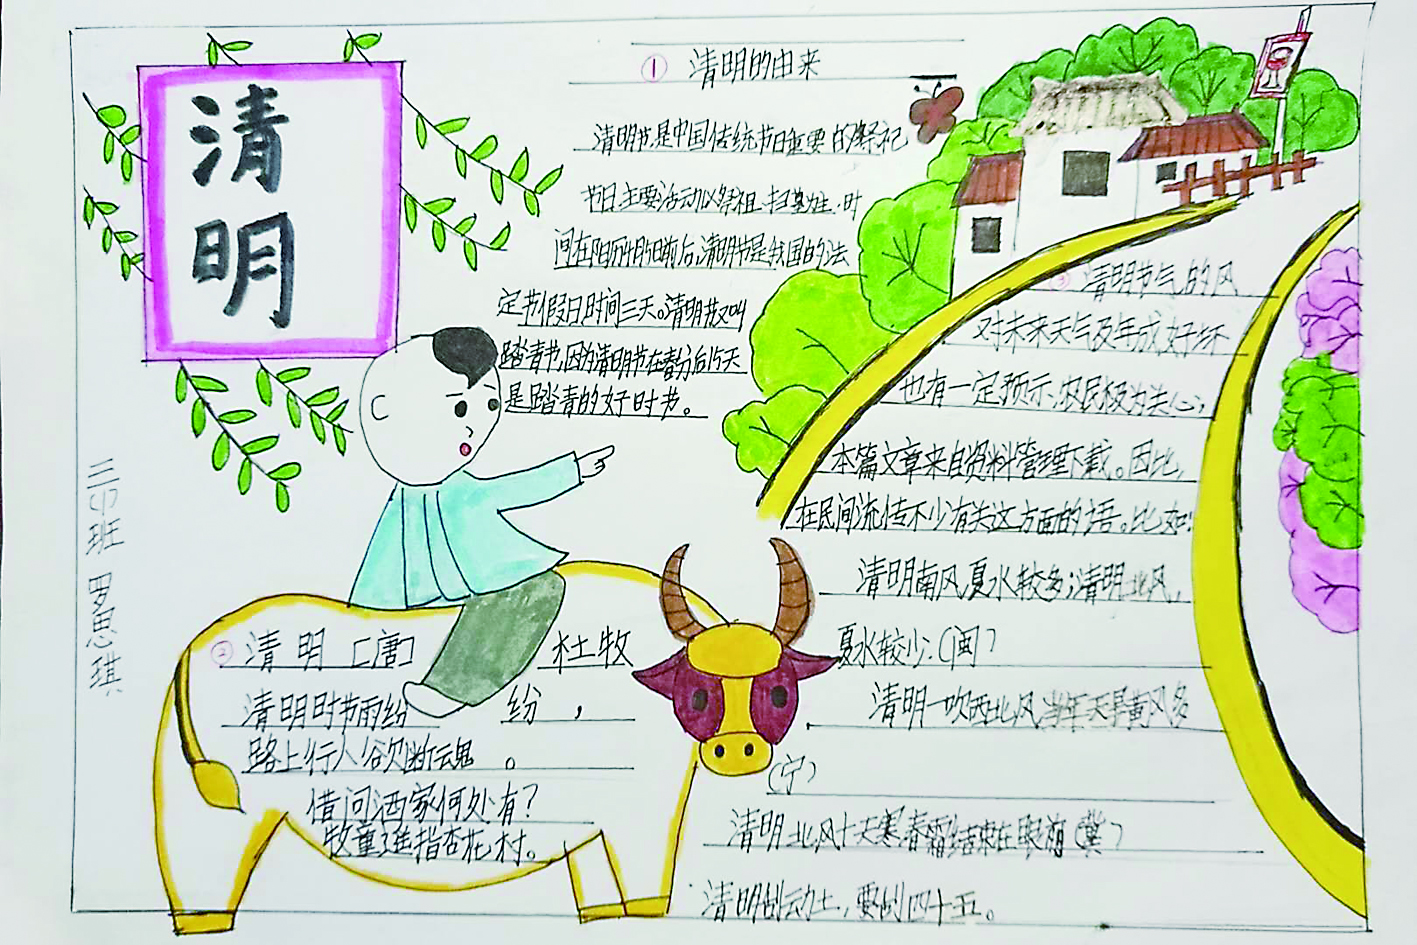 清明
① 清明的由来
清明节是中国传统节日重要的祭祀
节日主要活动以祭祖扫墓为主.时
间在阳历4月5日前后,清明节是我国的法
定节假日时间三天。清明节又叫
踏青节,因为清明节在春分后15天
是踏青的好时节。
② 清明 [唐] 杜牧
清明时节雨纷纷,
路上行人欲断魂。
借问酒家何处有?
牧童遥指杏花村。
③ 清明节气的风
对未来天气及年成好坏
也有一定预示,农民极为关心,
本篇文章来自资料管理下载。因比,
在民间流传不少有关这方面的语。比如:
清明南风,夏水较多;清明北风,
夏水较少.(闽)
清明一吹西北风,当年天旱黄风多
(宁)
清明北风十天寒,春霜结束在眼前(冀)
清明刮动土,要刮四十五。
三(1)班 罗思琪